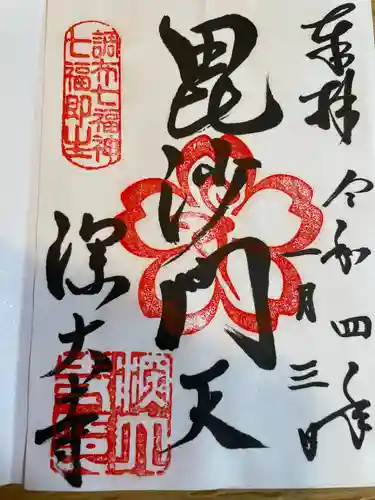 奉拝
令和四年
一月三日
毘沙門天
調布七福神
七福即生
深大寺